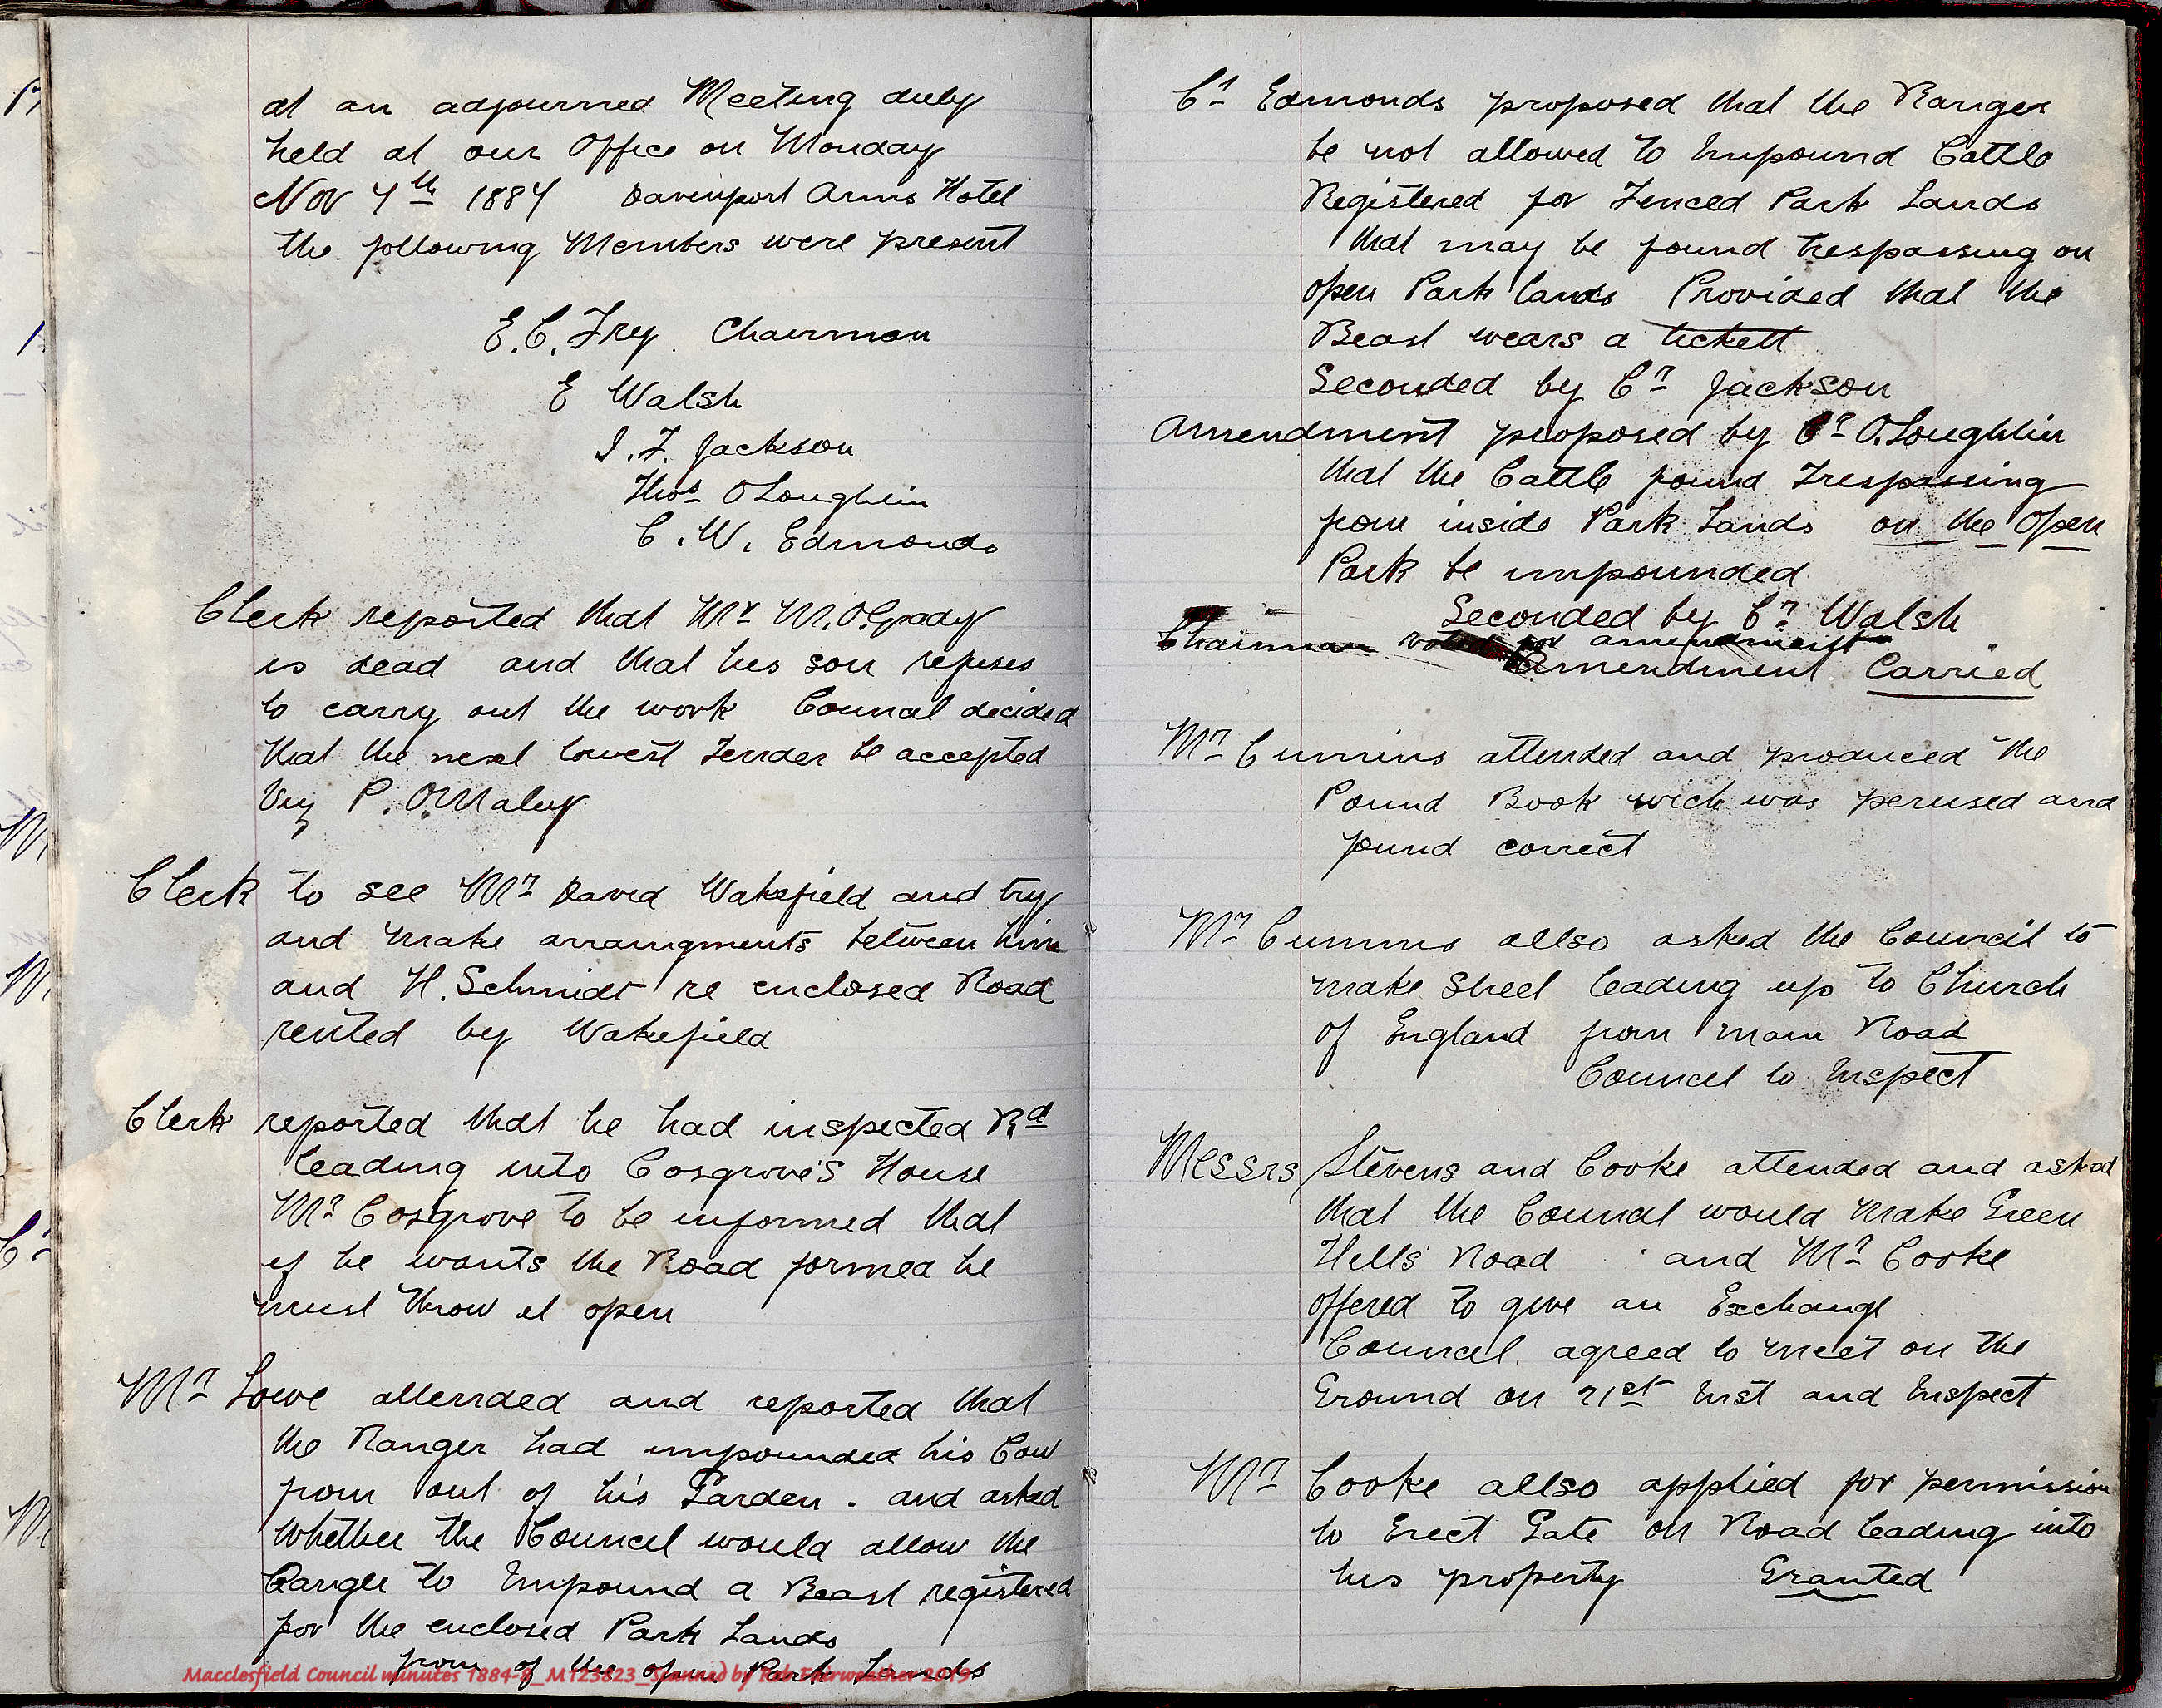 at an adjourned Meeting duly
held at our Office on Monday
Nov 4th 1884 Davenport Arms Hotel
the following Members were present
E. C. Fry. Chairman
E Walsh
J. F. Jackson
Thos O Loughlin
C. W. Edmonds
Clerk reported that Mr M. O.Grady
is dead and that his son refuses
to carry out the work Council decided
that the next lowest Tender be accepted
Viz P. O.Maley
Clerk to see Mr David Wakefield and try
and make arrangments between him
and H. Schmidt re enclosed Road
rented by Wakefield
Clerk reported that he had inspected Rd
leading into Cosgrove's House
Mr Cosgrove to be informed that
if he wants the Road formed he
must throw it open
Mr Lowe attended and reported that
the Ranger had impounded his Cow
from out of his Garden . and asked
Whether the Council would allow the
Ranger to Impound a Beast registered
for the enclosed Park Lands
from of the open Park Lands
Macclesfield Council minutes 1884-8_MT23823_Scanned by Rob Fairweather 2019
Cr Edmonds proposed that the Ranger
be not allowed to Impound Cattle
Registered for Fenced Park Lands
that may be found trespassing on
open Park lands Provided that the
Beast wears a tickett
Seconded by Cr Jackson
Amendment proposed by Cr O.Loughlin
that the Cattle found Trespassing
from inside Park Lands on the Open
Park be impounded
Seconded by Cr Walsh
Chairman voted for amendment
Amendment Carried
Mr Cumins attended and produced the
Pound Book wich was perused and
found correct
Mr Cumins allso asked the Council to
make Street leading up to Church
of England from main Road
Council to Inspect
Messrs Stevens and Cooke attended and asked
that the Council would make Green
Hills Road and Mr Cooke
offered to give an Exchange
Council agreed to meet on the
Ground on 21st Inst and Inspect
Mr Cooke allso applied for permission
to Erect Gate on Road leading into
his property Granted